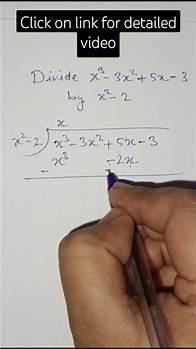 Click on link for detailed
video
Divide x³ - 3x² + 5x - 3
by x² - 2
x
x² - 2) x³ - 3x² + 5x - 3
x³ - 2x
-